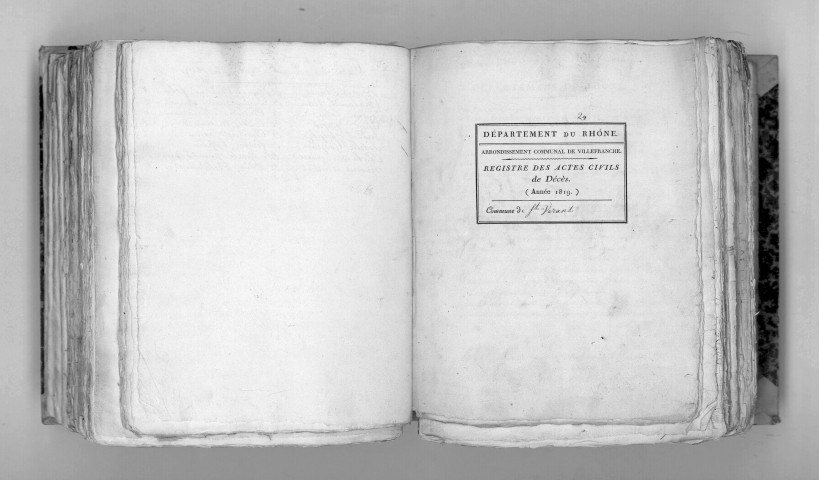 29
DÉPARTEMENT DU RHÔNE.
ARRONDISSEMENT COMMUNAL DE VILLEFRANCHE.
REGISTRE DES ACTES CIVILS
de Décès.
( Année 1819. )
Commune de St. Verand